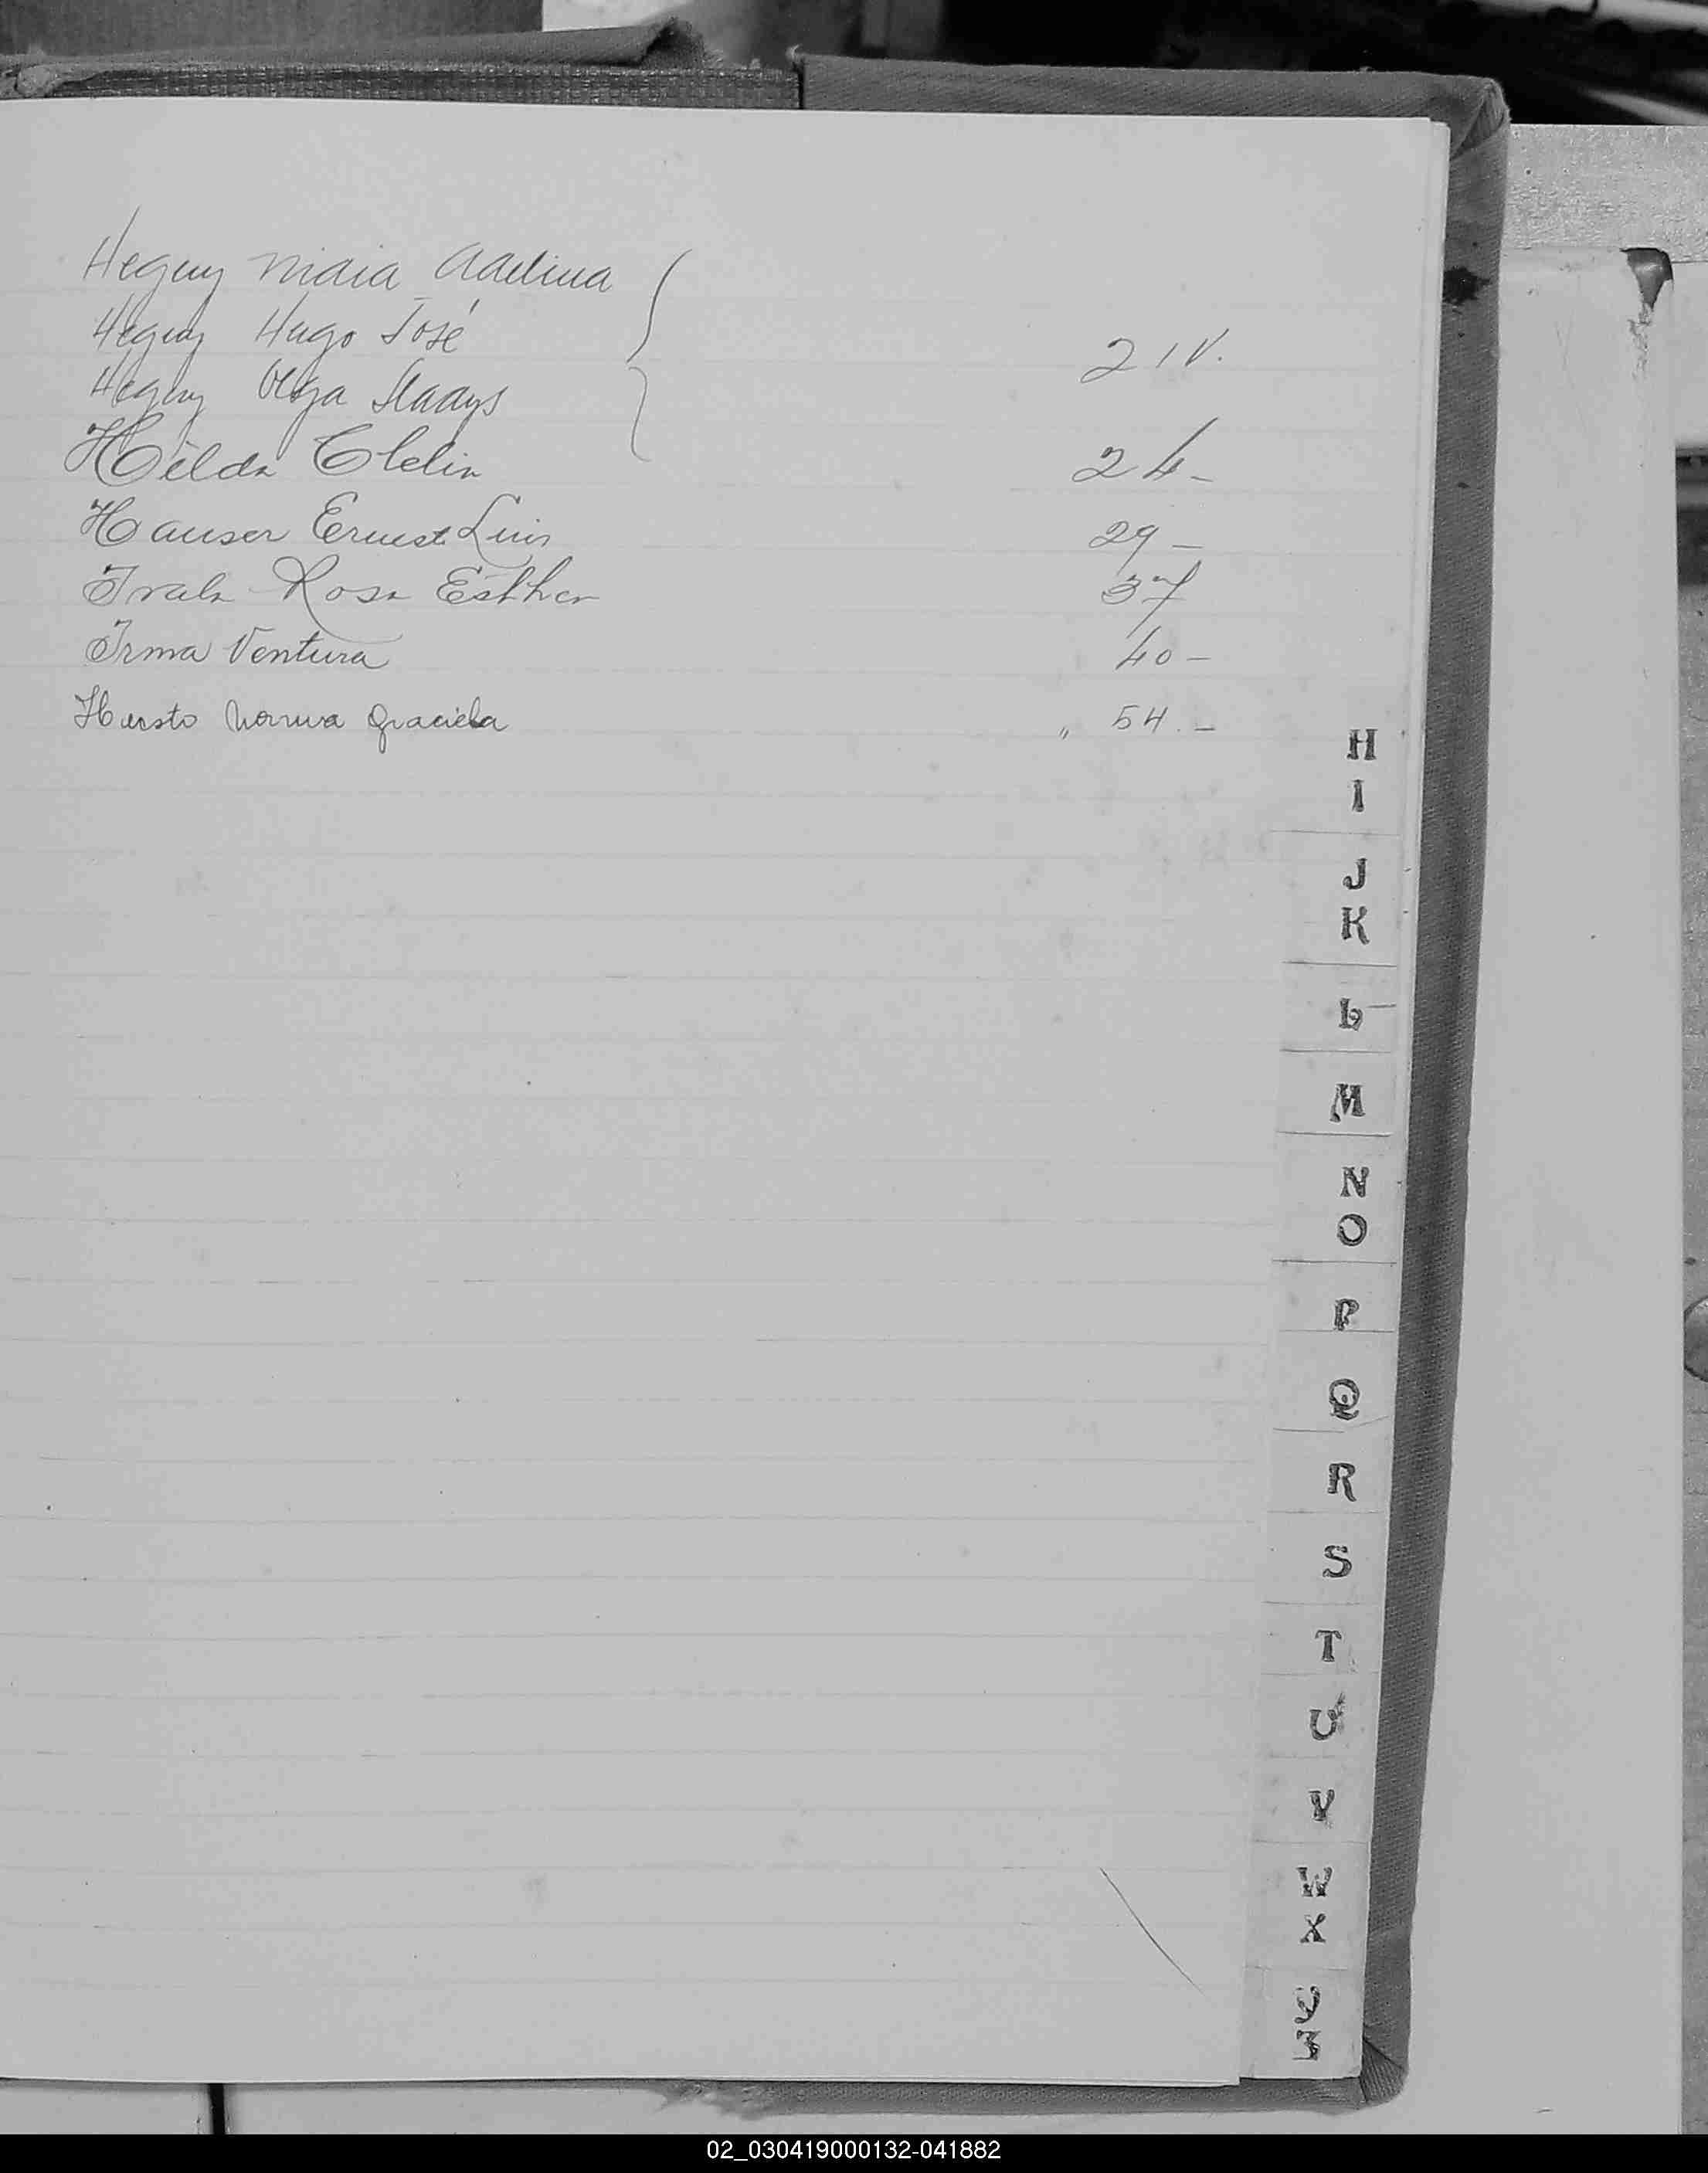 Heguy Maria Adelina
Heguy Hugo José
Heguy Olga Gladys
21 V.
Hilda Clelia 24 -
Hauser Ernest. Luis 29 -
Irala Rosa Esther 37
Irma Ventura 40 -
Norma Graciela " 54. -
H
I
J
K
L
M
N
O
P
Q
R
S
T
U
V
W
X
Y
Z
02_030419000132-041882